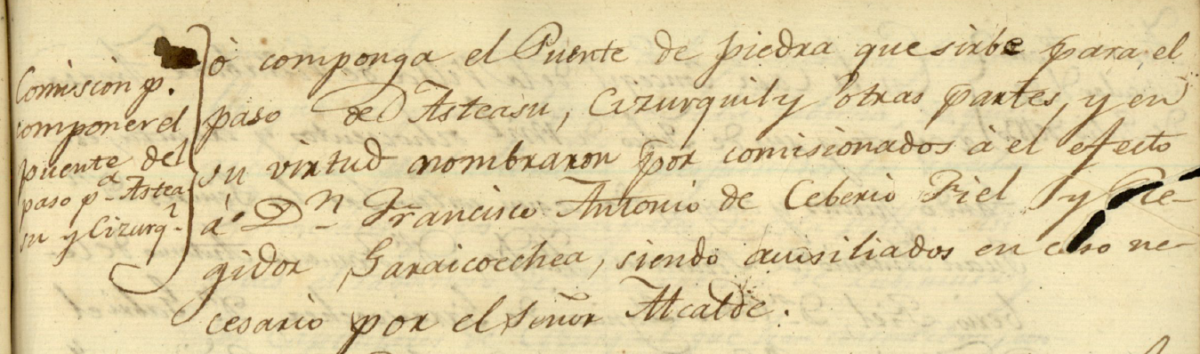 Comision p.
componer el
puente del
paso pa. Astea
su y Cizurql.
ó componga el Puente de piedra que sirbe para el
paso de Asteasu, Cizurquil y otras partes, y en
su virtud nombraron por comisionados á el efecto
á Dn. Francisco Antonio de Ceberio Fiel y Re-
gidor Garaicoechea, siendo ausiliados en caso ne-
cesario por el Señor Alcalde.